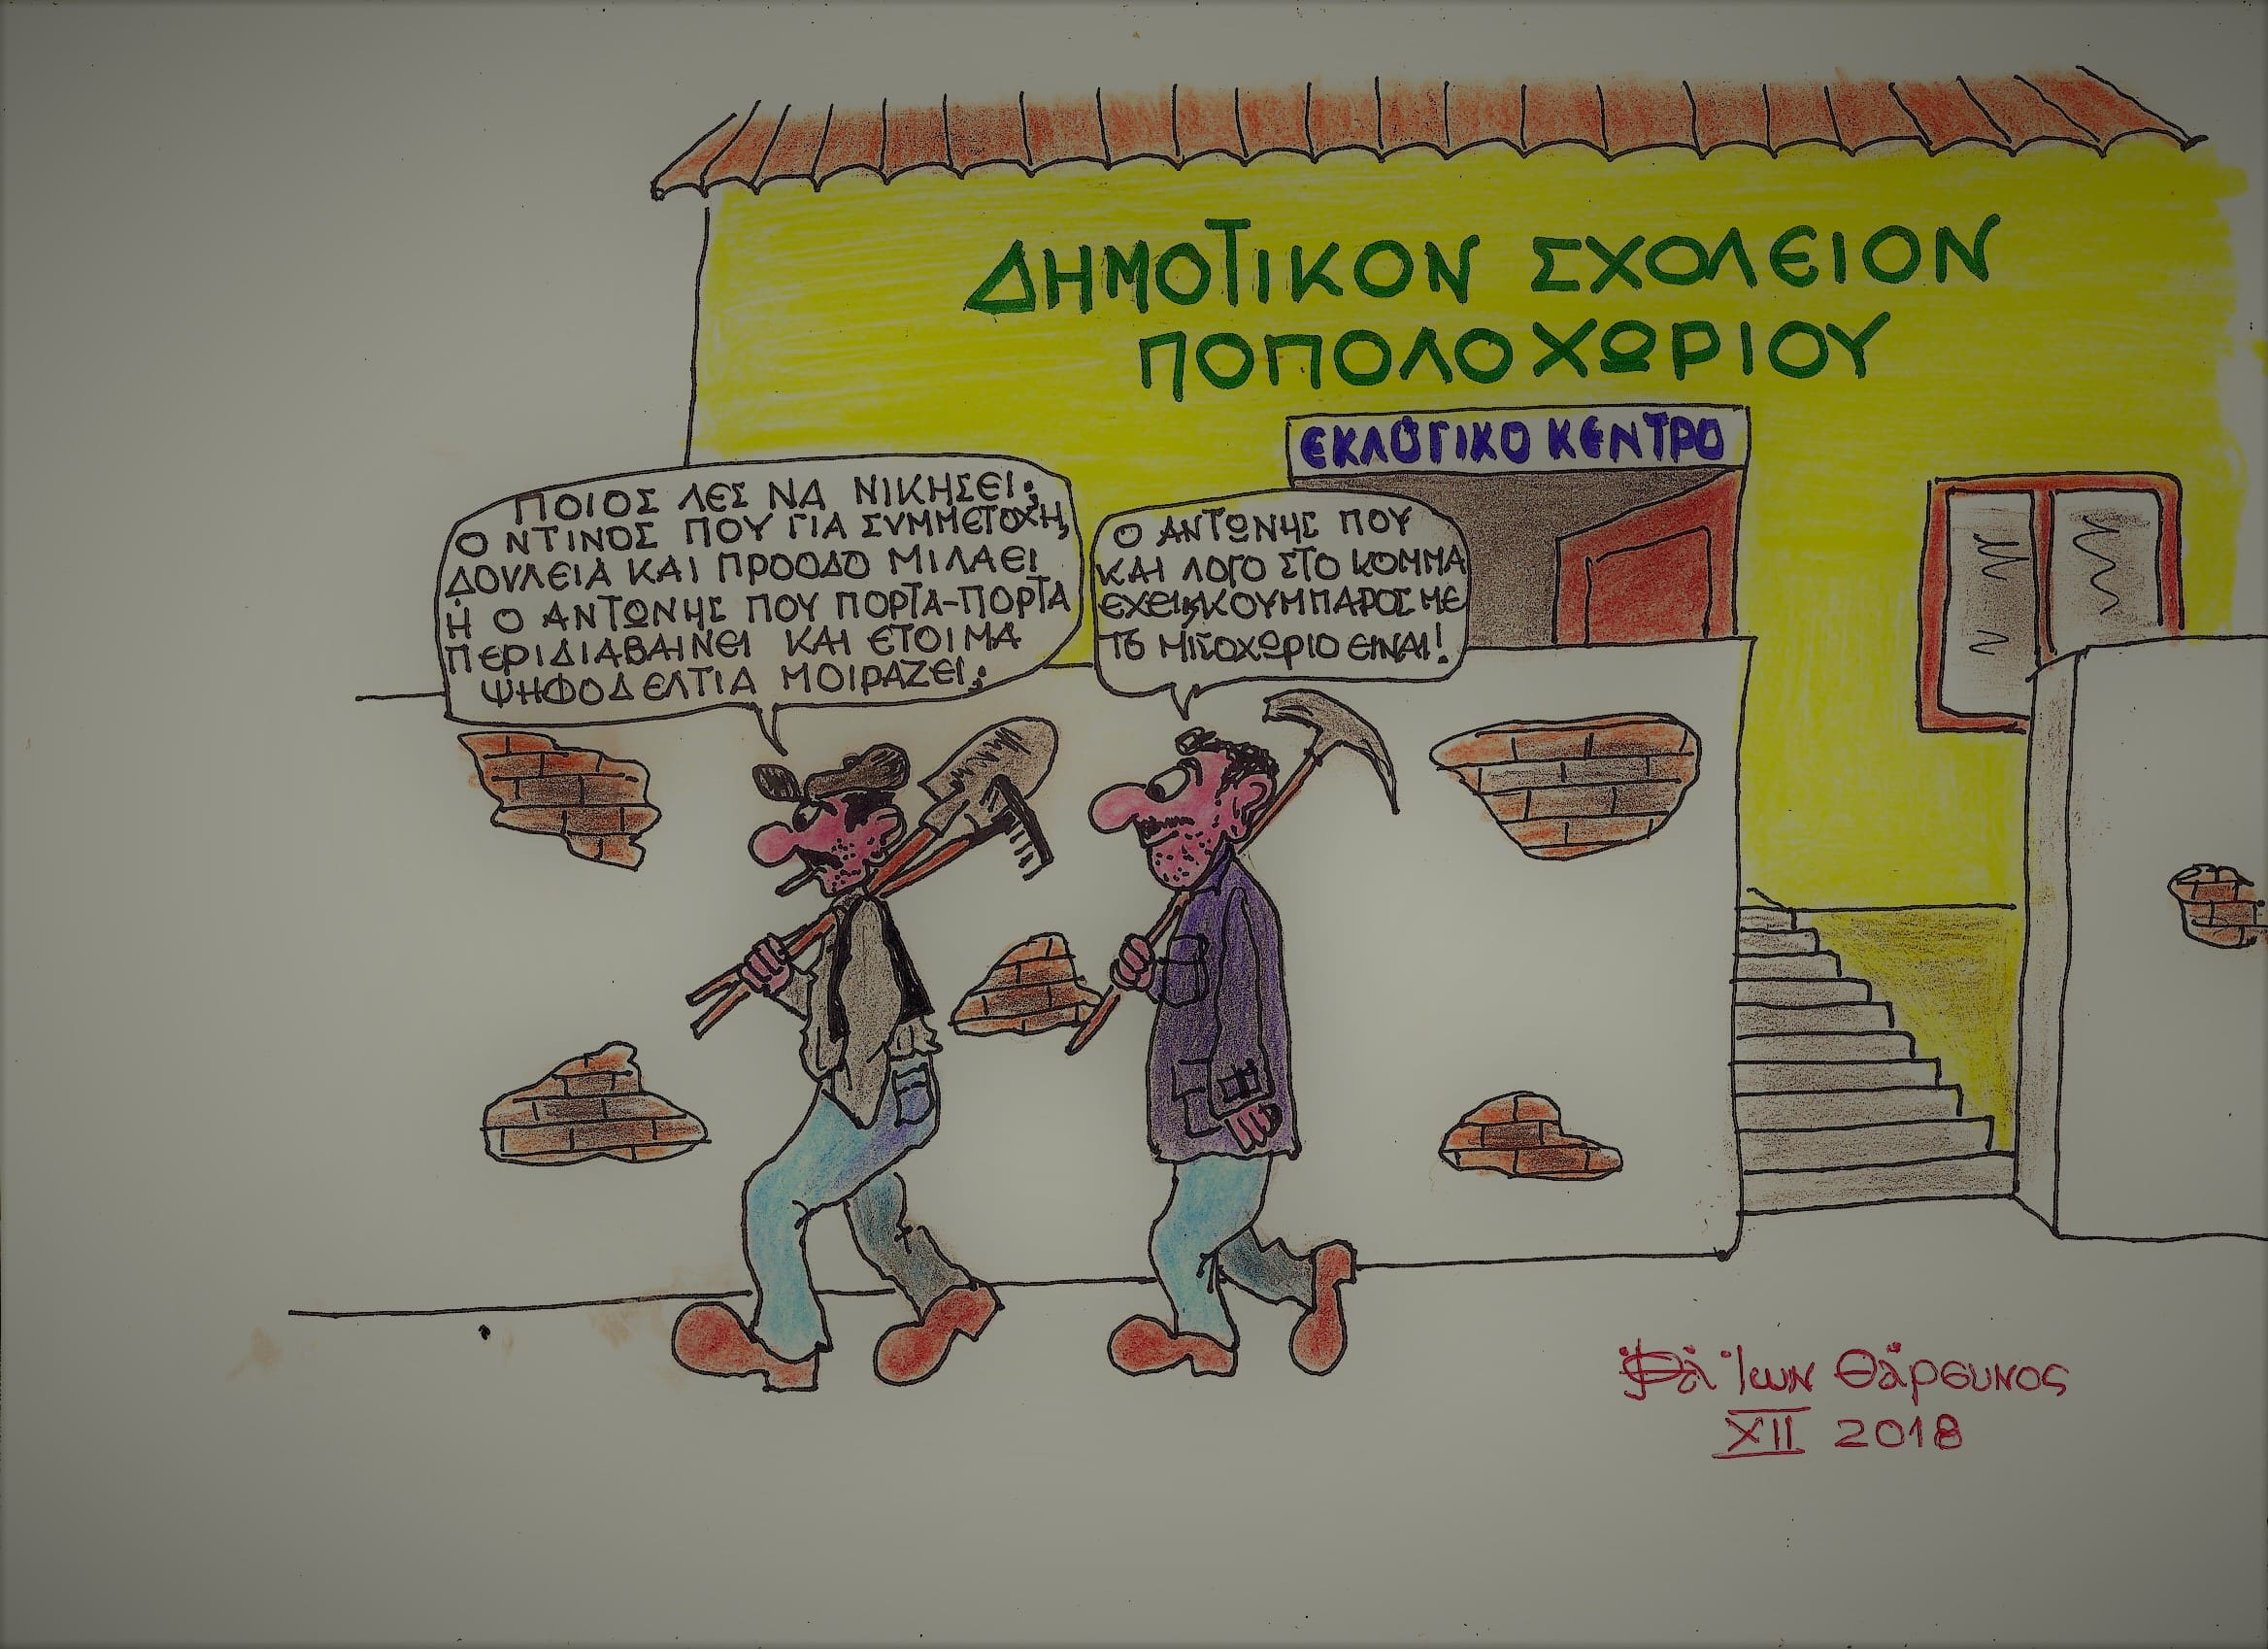 ΔΗΜΟΤΙΚΟΝ ΣΧΟΛΕΙΟΝ
ΠΟΠΟΛΟΧΩΡΙΟΥ
ΕΚΛΟΓΙΚΟ ΚΕΝΤΡΟ
ΠΟΙΟΣ ΛΕΣ ΝΑ ΝΙΚΗΣΕΙ;
Ο ΝΤΙΝΟΣ ΠΟΥ ΓΙΑ ΣΥΜΜΕΤΟΧΗ,
ΔΟΥΛΕΙΑ ΚΑΙ ΠΡΟΟΔΟ ΜΙΛΑΕΙ
Η Ο ΑΝΤΩΝΗΣ ΠΟΥ ΠΟΡΤΑ-ΠΟΡΤΑ
ΠΕΡΙΔΙΑΒΑΙΝΕΙ ΚΑΙ ΕΤΟΙΜΑ
ΨΗΦΟΔΕΛΤΙΑ ΜΟΙΡΑΖΕΙ;
Ο ΑΝΤΩΝΗΣ ΠΟΥ
ΚΑΙ ΛΟΓΟ ΣΤΟ ΚΟΜΜΑ
ΕΧΕΙ, ΚΟΥΜΠΑΡΟΣ ΜΕ
ΤΟ ΜΙΣΟΧΩΡΙΟ ΕΙΝΑΙ!
Ίων Θάρσυνος
XII 2018